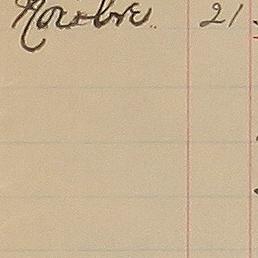 Novbre. 21